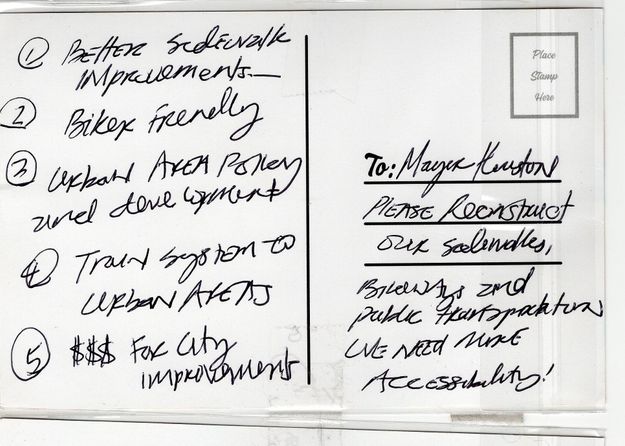 ① Better sidewalk
improvements—
② Biker Friendly
③ Urban Area Policy
and development
④ Train system to
urban Areas
⑤ $$$ For City
improvement
Place
Stamp
Here
To: Mayor Houston
Please Reconstruct
our sidewalks,
Bikeways and
public transportation
WE NEED MORE
Accessibility!